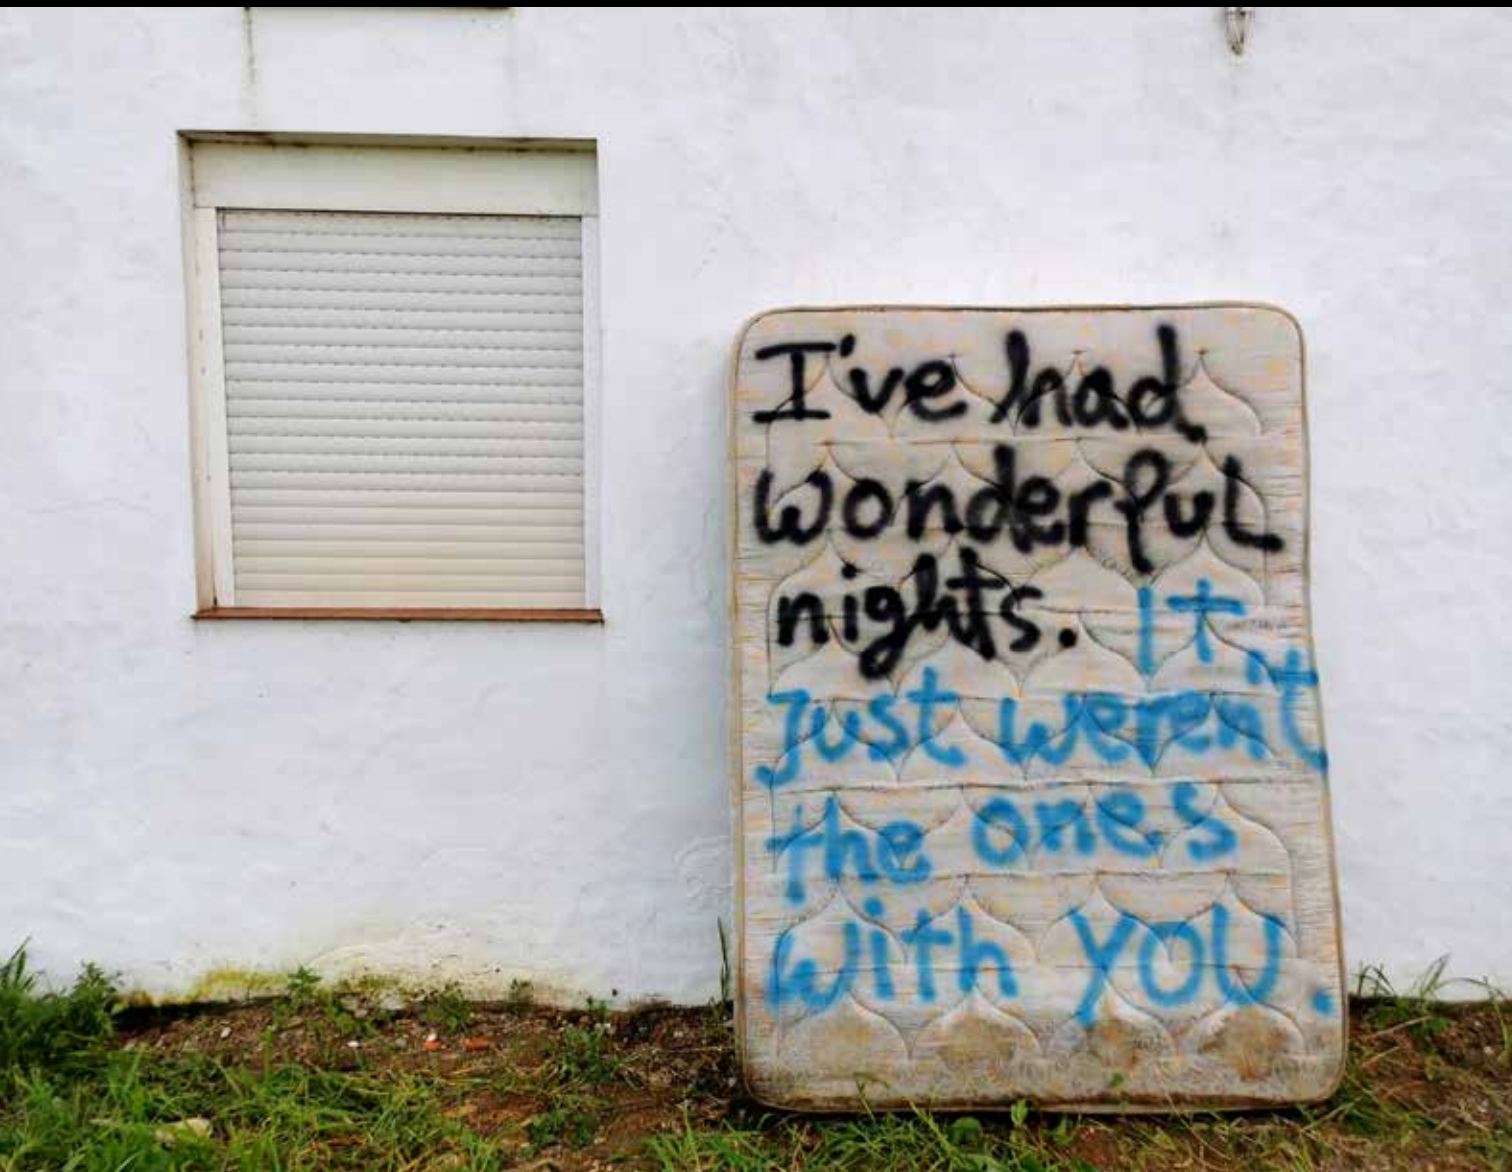 I've had
wonderful
nights. It
Just weren't
the ones
with YOU.